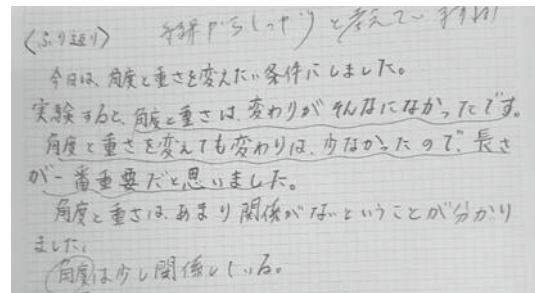 と考えています
〈ふり返り〉
今日は、角度と重さを変えたい条件にしました。
実験すると、角度と重さは、変わりがそんなになかったです。
角度と重さを変えても変わりは、少なかったので、長さ
が一番重要だと思いました。
角度と重さは、あまり関係がないということが分かり
ました。
角度は少し関係している。